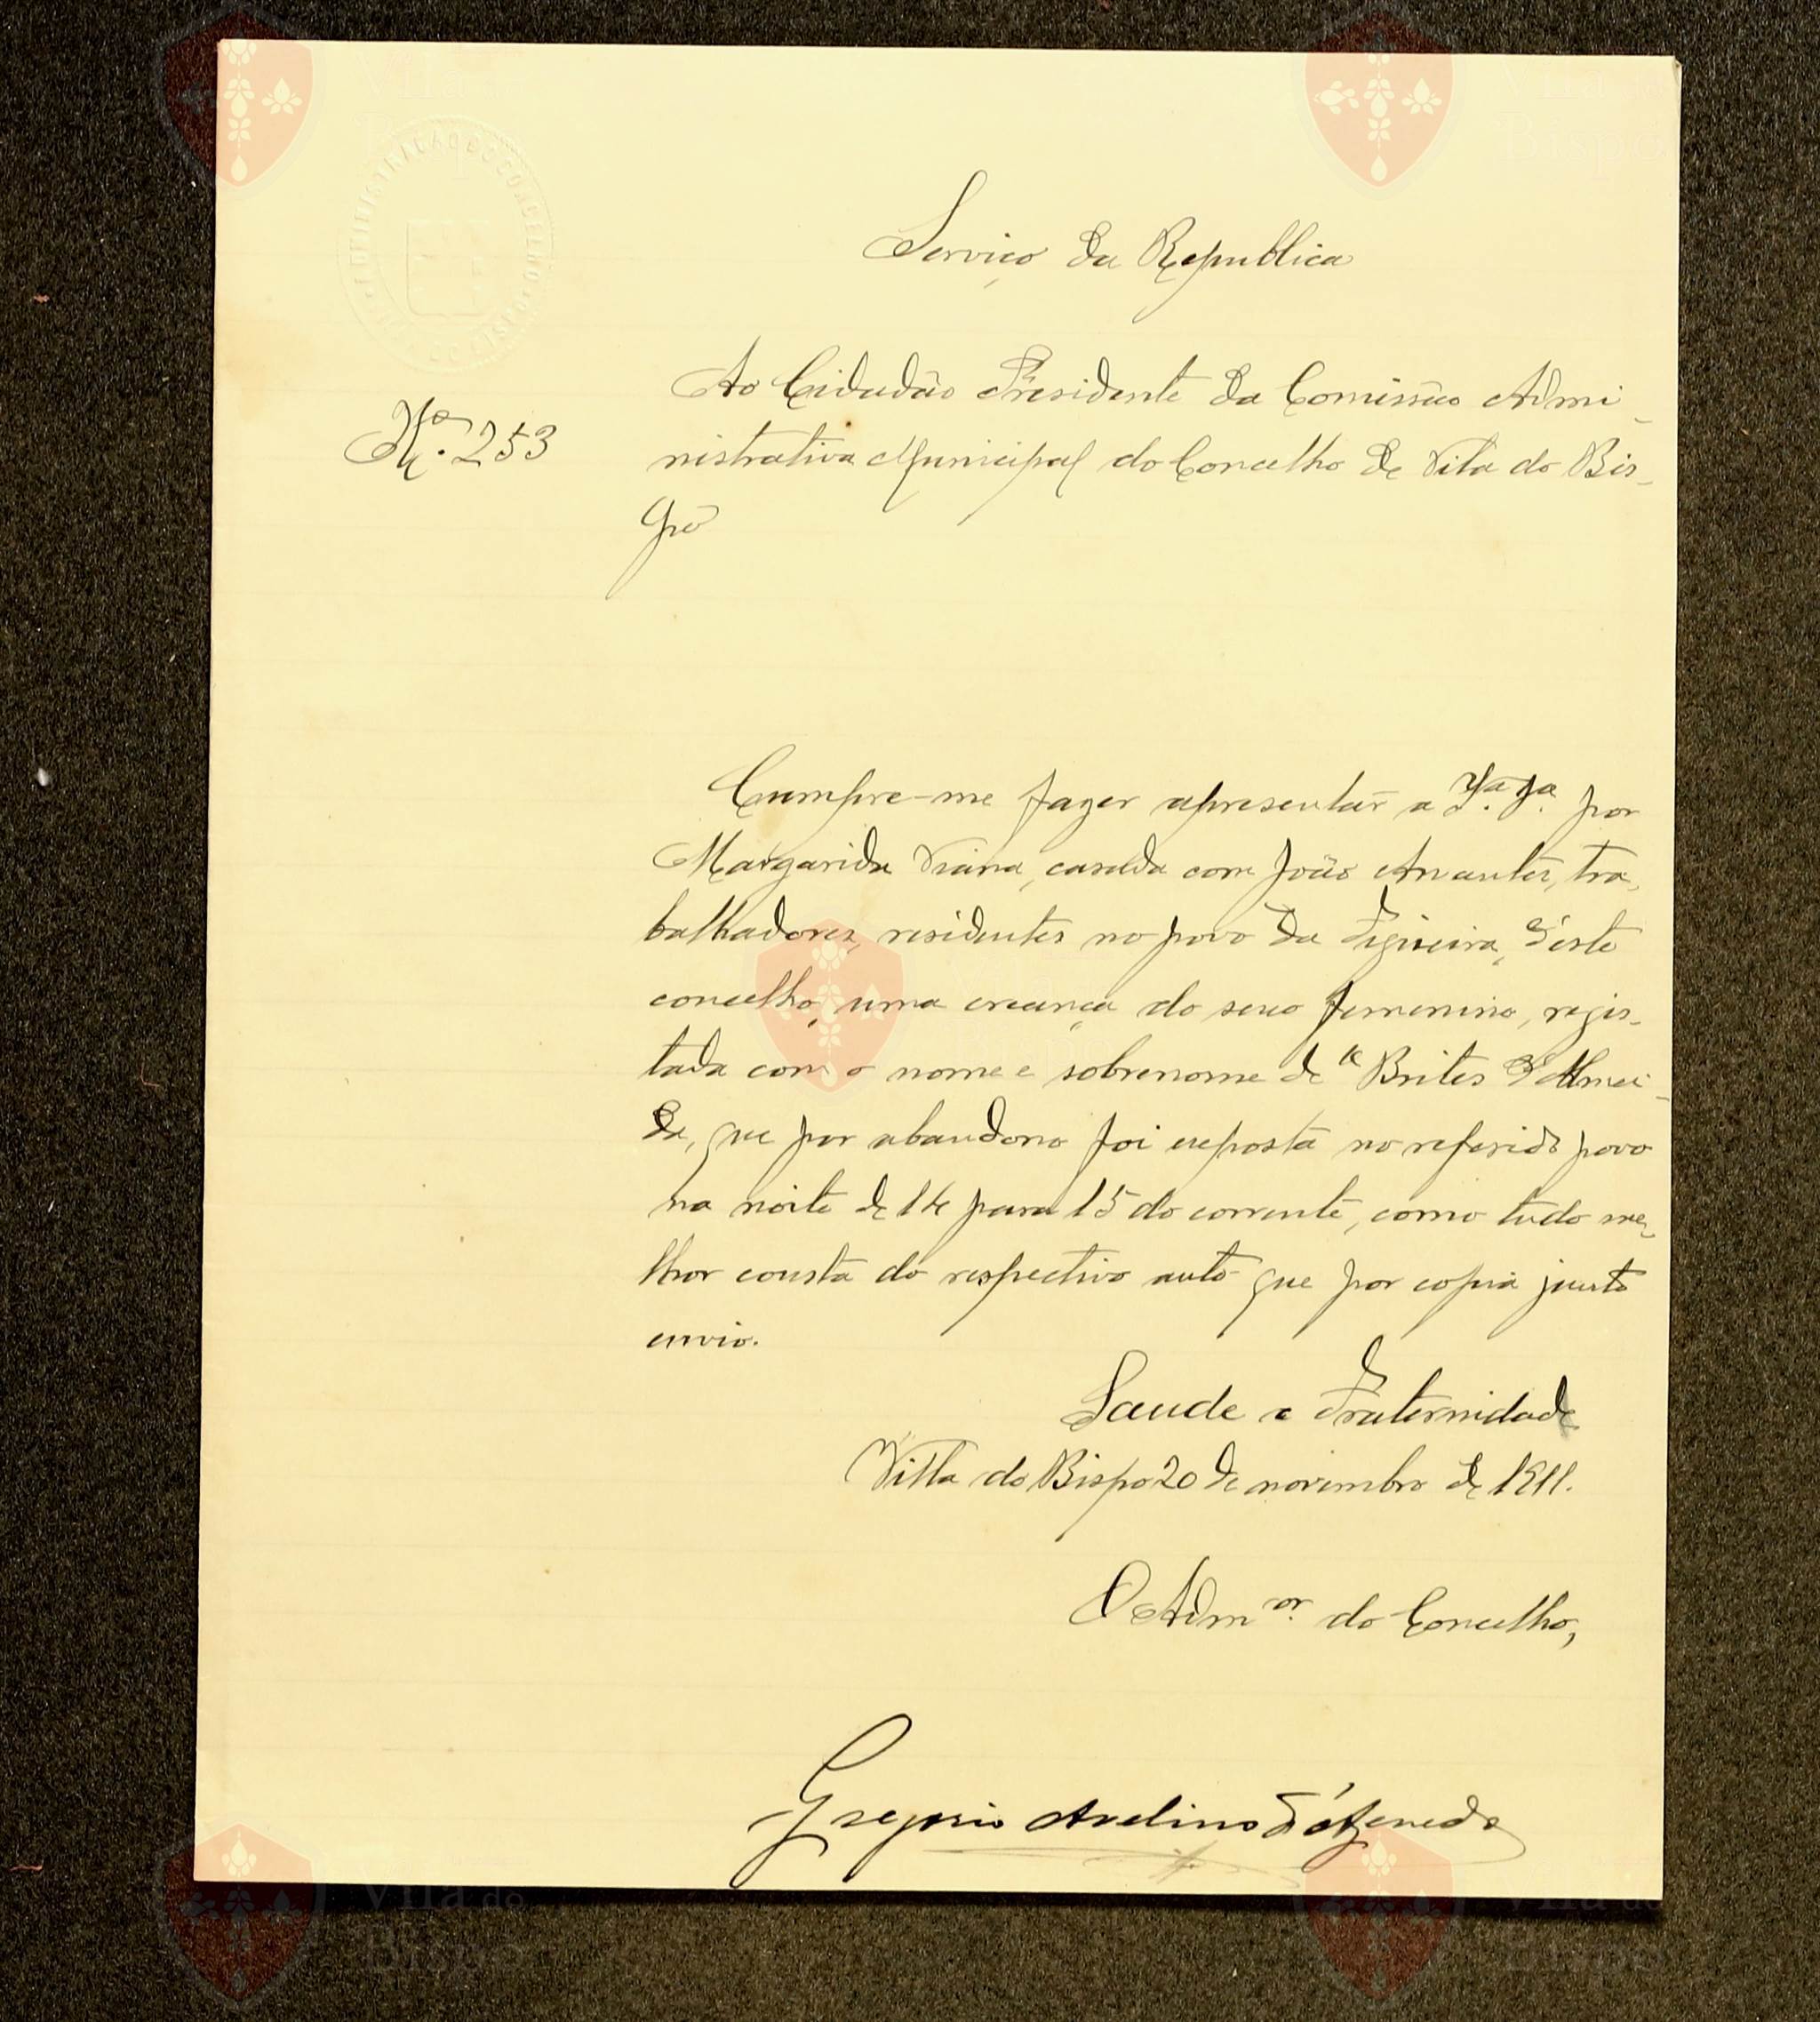 Serviço da Republica
Nº. 253
Ao Cidadão Presidente da Comissão Admi-
nistrativa Municipal do Concelho de Vila do Bis-
po
Cumpre-me fazer apresentar a por
Margarida Viana, casada com João Arvantes, tra-
balhadores, residentes no povo da Figueira, d'este
concelho, uma creança do sexo femenino, regis-
tada com o nome e sobrenome de "Brites d'Almei-
da, que por abandono foi exposta no referido povo
na noite de 14 para 15 do corrente, como tudo me-
lhor consta do respectivo auto que por copia junto
envio.
Saude e Fraternidade
Villa do Bispo 20 de novembro de 1911.
O Adm.or do Concelho,
Gregorio Avelino d'Azevedo
Vila do
Bispo
Vila do
Bispo